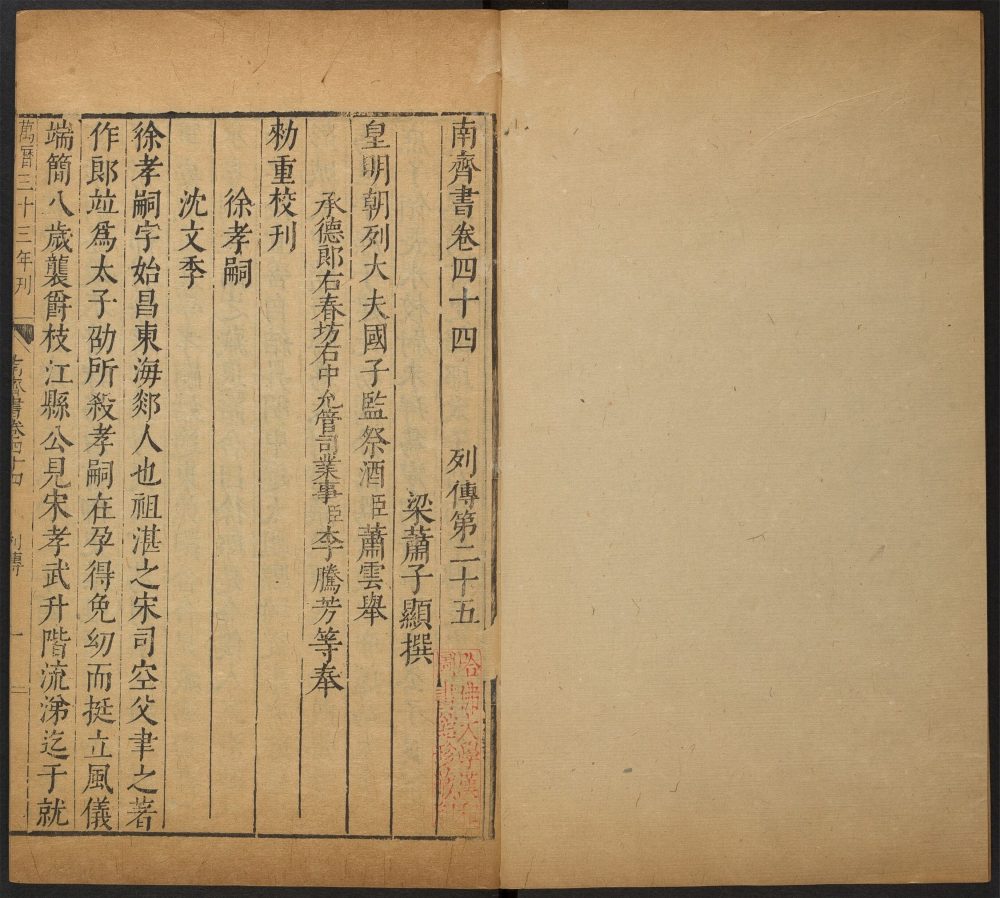 南齊書卷四十四 列傳第二十五
梁蕭子顯撰
皇明朝列大夫國子監祭酒臣蕭雲舉
承德郎右春坊右中允管司業事臣李騰芳等奉
勑重校刊
徐孝嗣
沈文季
徐孝嗣字始昌東海郯人也祖湛之宋司空父聿之著
作郎竝爲太子劭所殺孝嗣在孕得免幼而挺立風儀
端簡八歲襲爵枝江縣公見宋孝武升階流涕迄于就
萬曆三十三年刊
南齊書卷四十四 列傳 一
哈佛大學漢和
圖書館珍藏印